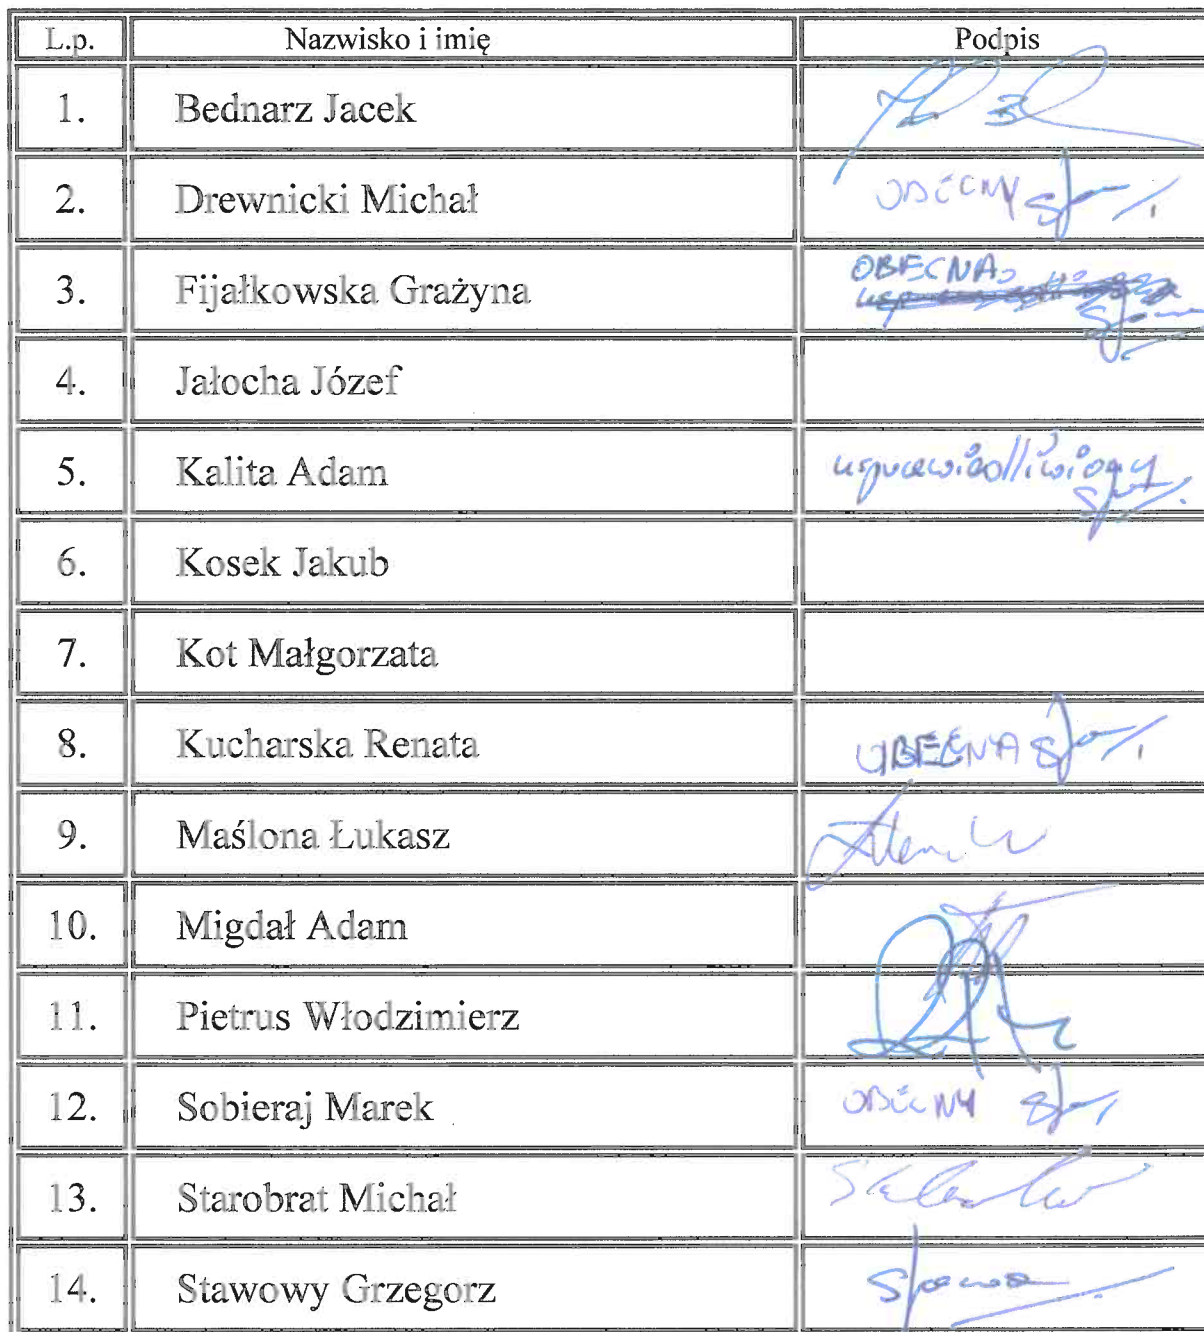 L.p. Nazwisko i imię Podpis
1. Bednarz Jacek
2. Drewnicki Michał OBECNY
3. Fijałkowska Grażyna OBECNA
4. Jałocha Józef
5. Kalita Adam usprawiedliwiony
6. Kosek Jakub
7. Kot Małgorzata
8. Kucharska Renata OBECNA
9. Maślona Łukasz
10. Migdał Adam
11. Pietrus Włodzimierz
12. Sobieraj Marek OBECNY
13. Starobrat Michał
14. Stawowy Grzegorz